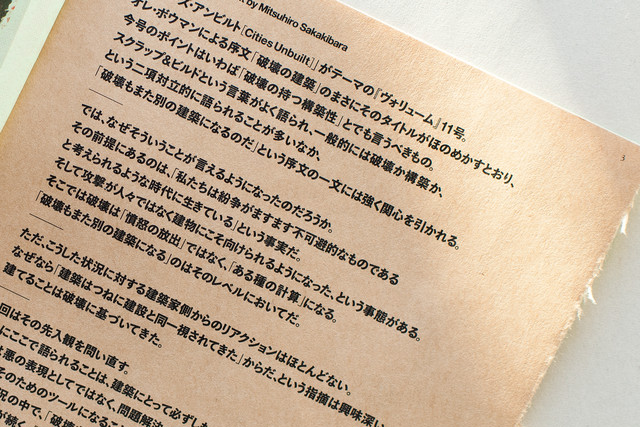 t by Mitsuhiro Sakakibara
ズ・アンビルト［Cities Unbuilt］」がテーマの『ヴォリューム』11号。
オレ・ボウマンによる序文「破壊の建築」のまさにそのタイトルがほのめかすとおり、
今号のポイントはいわば「破壊の持つ構築性」とでも言うべきもの。
スクラップ&ビルドという言葉がよく語られ、一般的には破壊か構築か、
という二項対立的に語られることが多いなか、
「破壊もまた別の建築になるのだ」という序文の一文には強く関心を引かれる。
では、なぜそういうことが言えるようになったのだろうか。
その前提にあるのは、「私たちは紛争がますます不可避的なものである
と考えられるような時代に生きている」という事実だ。
そして攻撃が人々ではなく建物にこそ向けられるようになった、という事態がある。
そこでは破壊は「憤怒の放出」ではなく、「ある種の計算」になる。
「破壊もまた別の建築になる」のはそのレベルにおいてだ。
ただ、こうした状況に対する建築家側からのリアクションはほとんどない。
なぜなら「建築はつねに建設と同一視されてきた」からだ、という指摘は興味深い
建てることは破壊に基づいてきた。
回はその先入観を問い直す。
にここで語られることは、建築にとって必ずした
悪の表現としてではなく、問題解決
そのためのツールになるこ
況の中で、「破壊
が続く
3